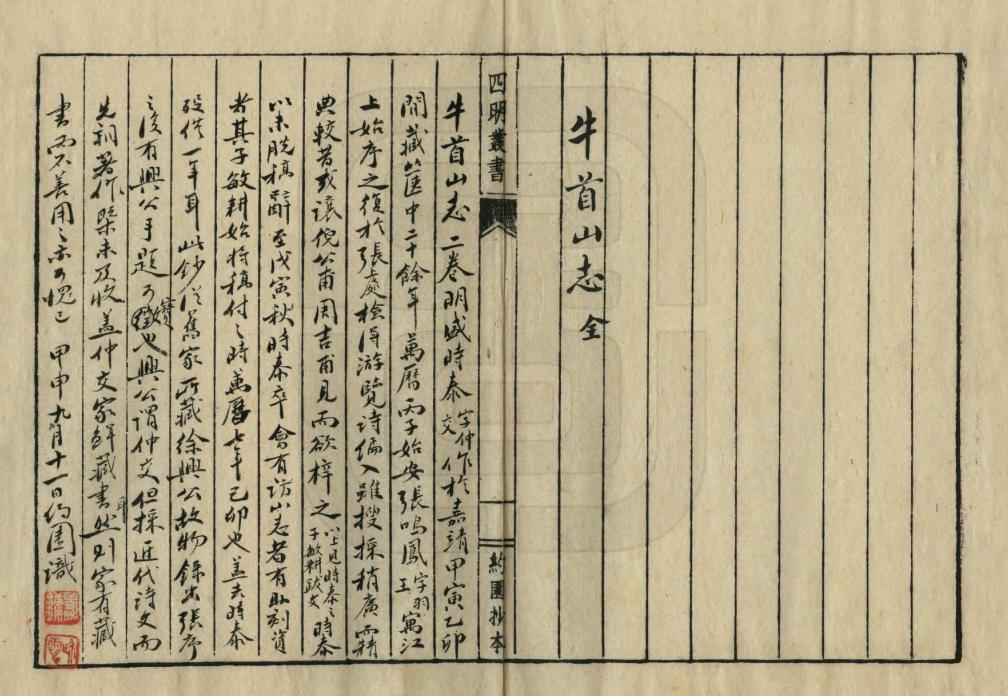 牛首山志 全
四明叢書
約園抄本
牛首山志二卷明盛時泰字仲交作於嘉靖甲寅乙卯
間藏篋中二十餘年萬曆丙子始安張鳴鳳字羽王寓江
上始序之復於張處檢得游覽詩編入雖搜採稍廣而精
典較昔或讓倪公甫周吉甫見而欲梓之以上見時泰之子敏耕跋文時泰
以未脫稿辭至戊寅秋時泰卒會有訪山志者有助刻資
者其子敏耕始將稿付之時萬曆七年己卯也蓋去時泰
歿僅一年耳此鈔從舊家所藏徐興公故物錄出張序
之後有興公手題可寶也興公謂仲交但採近代詩文而
先朝著作槩未及收蓋仲交家鮮藏書耳然則家有藏
書而不善用之亦可愧已 甲申九月十一日約園識